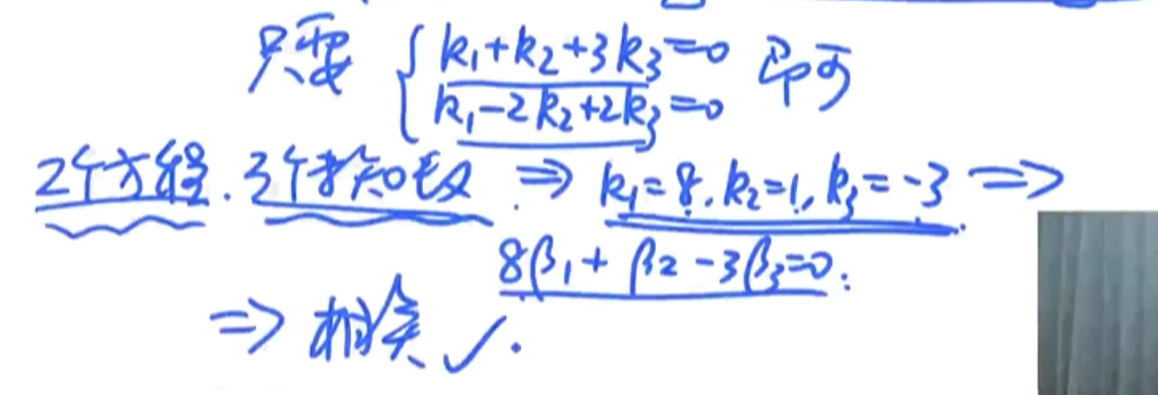 只要 { k₁+k₂+3k₃=0 即可
k₁-2k₂+2k₃=0
2个方程.3个未知数 ⇒ k₁=8,k₂=1,k₃=-3 ⇒
8β₁+β₂-3β₃=0.
⇒ 相关 ✓.